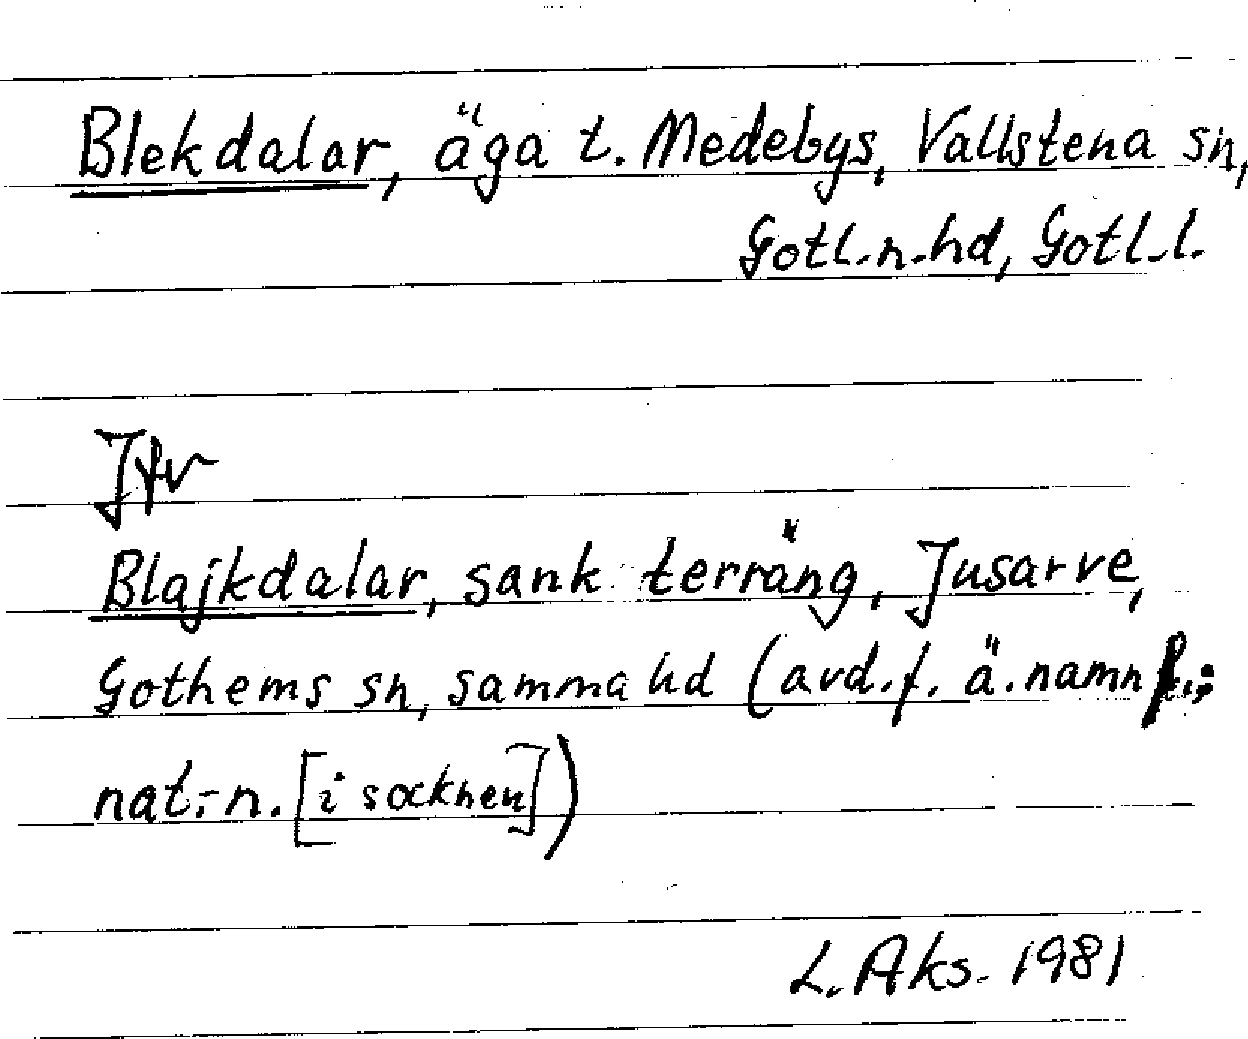 Blekdalar, äga t. Medebys, Vallstena sn,
Gotl.n.hd, Gotl.l.
Jfr
Blajkdalar, sank terräng, Jusarve,
Gothems sn, samma hd (avd.f. ä.namnf.;
nat.-n. [i socknen])
L. Aks. 1981